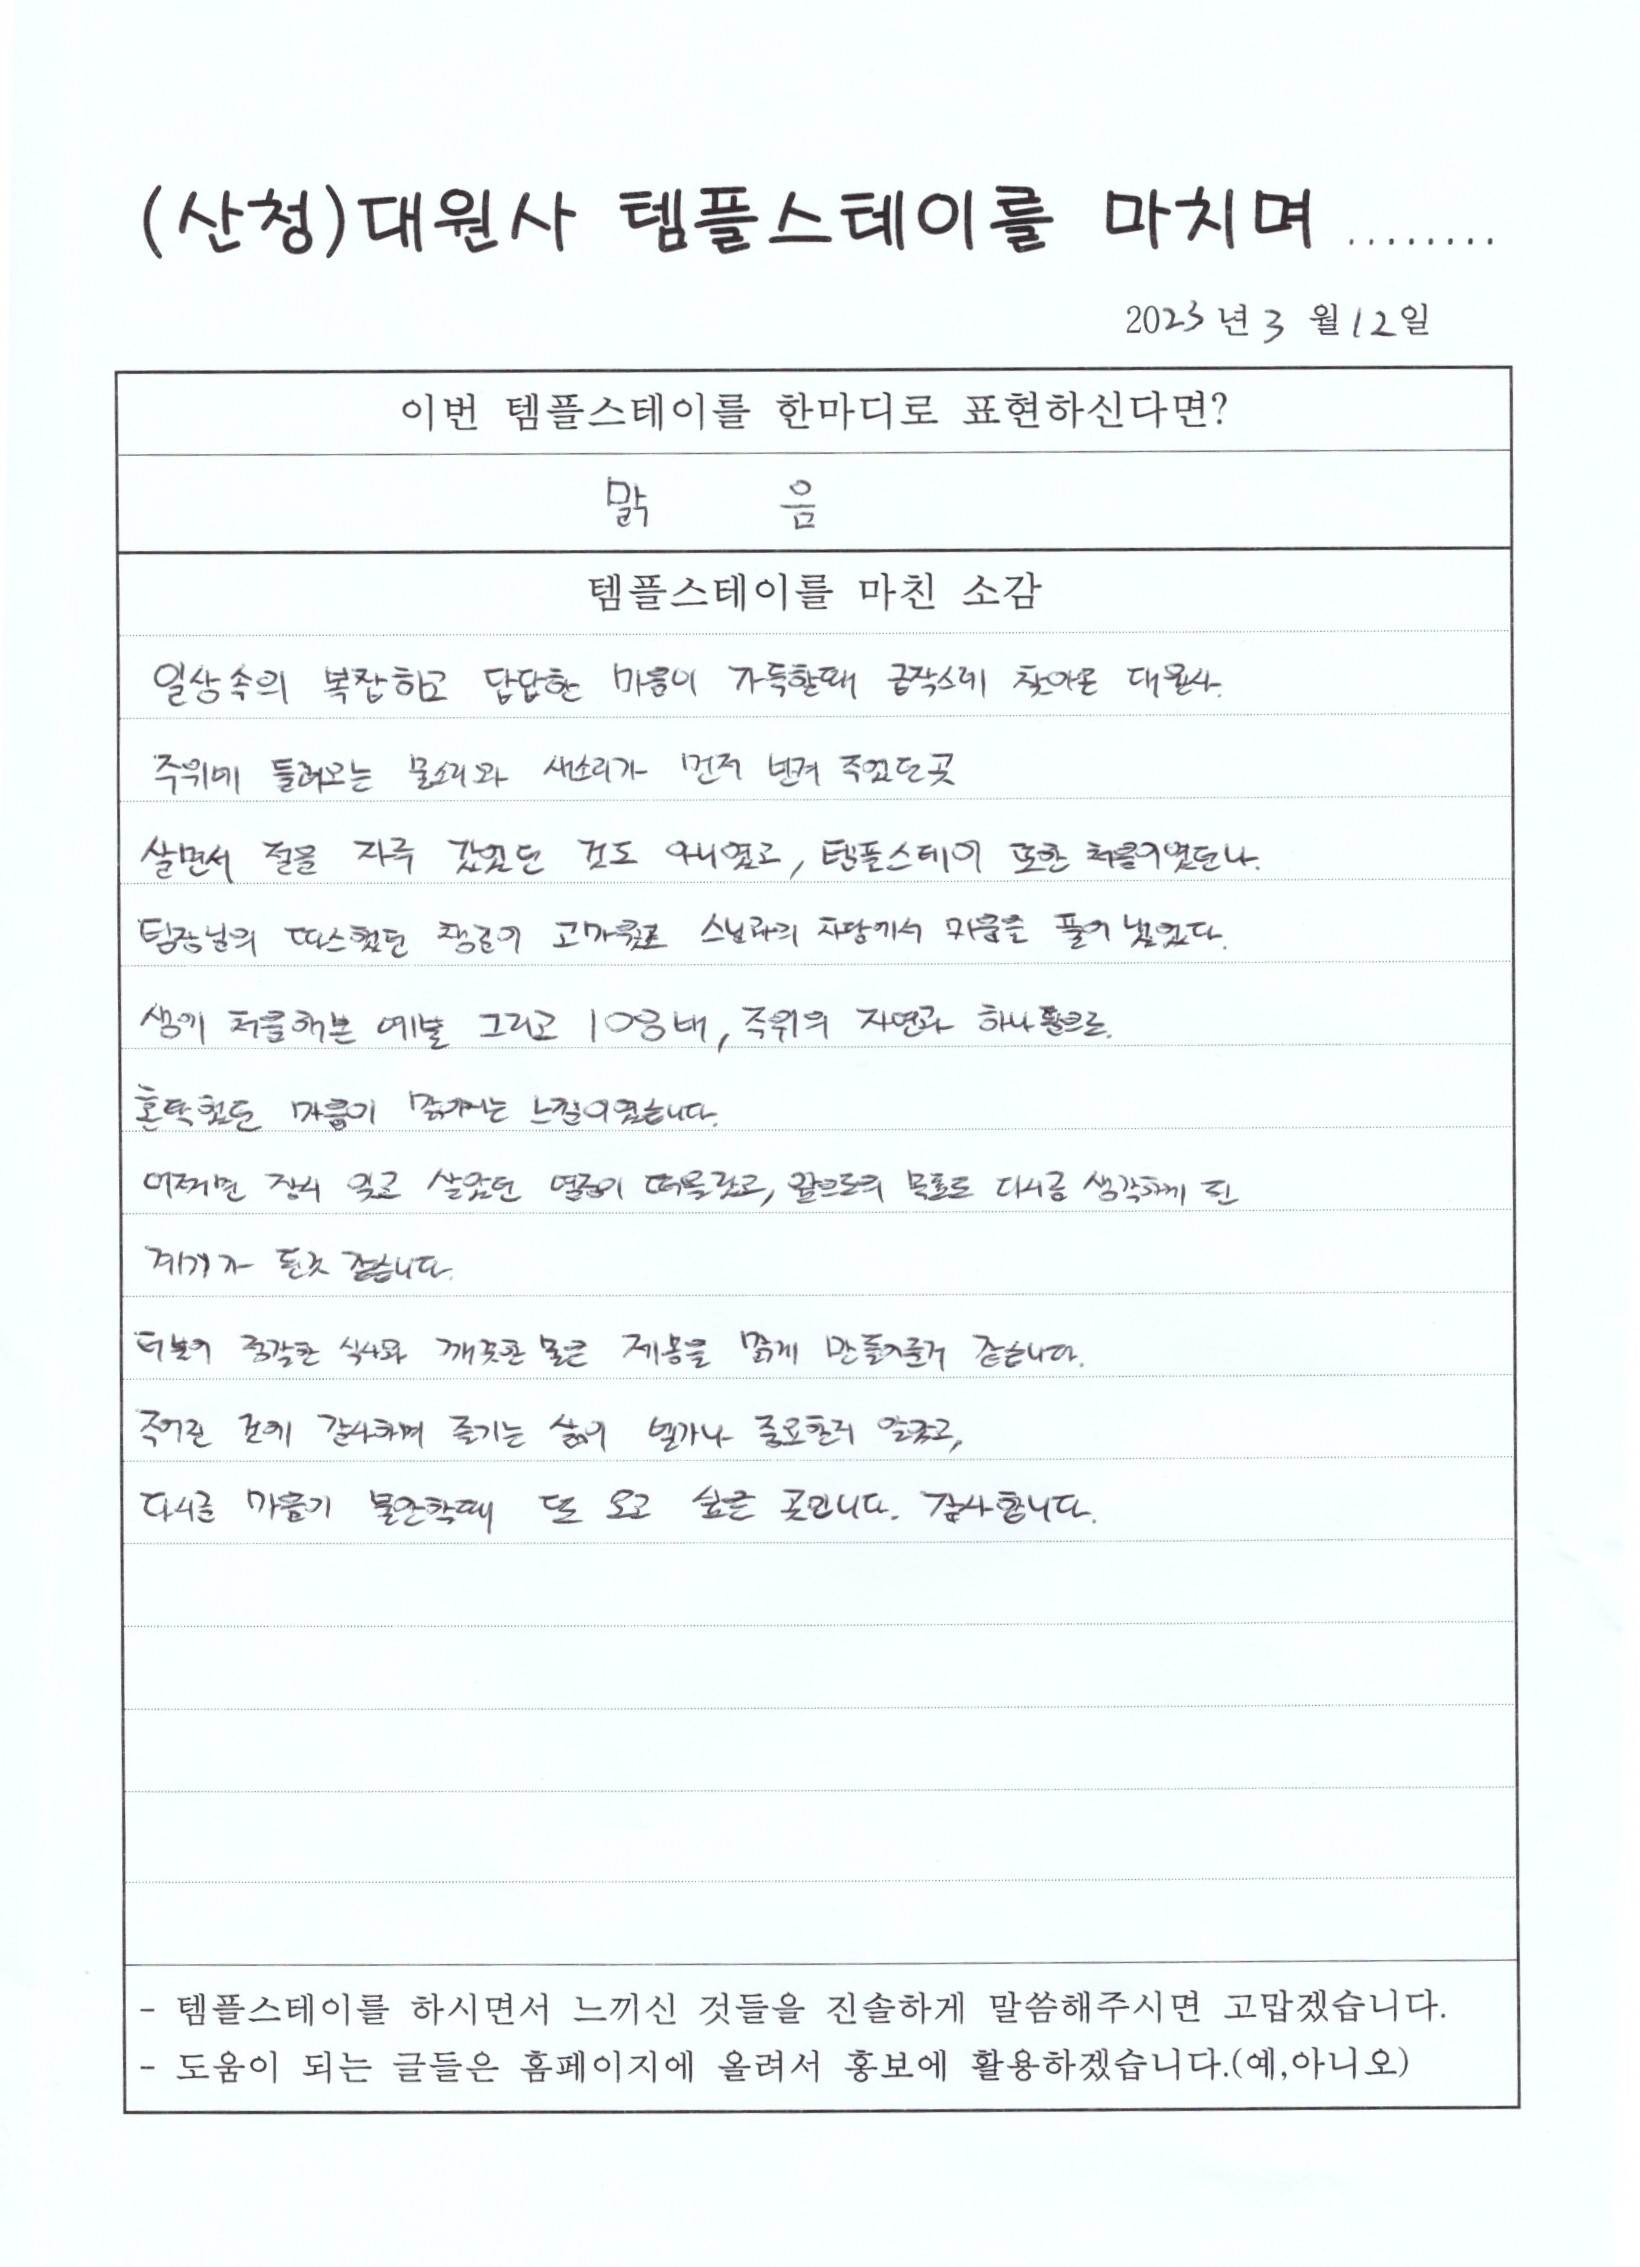 (산청)대원사 템플스테이를 마치며 ........
2023년 3월 12일
이번 템플스테이를 한마디로 표현하신다면?
맑 음
템플스테이를 마친 소감
일상속의 복잡하고 답답한 마음이 가득할때 급작스레 찾아온 대원사.
주위에 들려오는 물소리와 새소리가 먼저 반겨 주었던곳
살면서 절을 자주 갔었던 것도 아니였고, 템플스테이 또한 처음이였던나.
팀장님의 따스했던 챙김이 고마웠고 스님과의 차담에서 마음을 풀어 냈었다.
생애 처음해본 예불 그리고 108배, 주위의 자연과 하나 됨으로.
혼탁했던 마음이 맑아지는 느낌이였습니다.
어쩌면 잠시 잊고 살았던 열정이 떠올랐고, 앞으로의 목표도 다시금 생각하게 된
계기가 된것 같습니다.
더불어 정갈한 식사와 깨끗한 물은 제몸을 맑게 만들어준거 같습니다.
주어진 것에 감사하며 즐기는 삶이 얼마나 중요한지 알았고,
다시금 마음이 불안할때 또 오고 싶은 곳입니다. 감사합니다.
- 템플스테이를 하시면서 느끼신 것들을 진솔하게 말씀해주시면 고맙겠습니다.
- 도움이 되는 글들은 홈페이지에 올려서 홍보에 활용하겠습니다.(예,아니오)